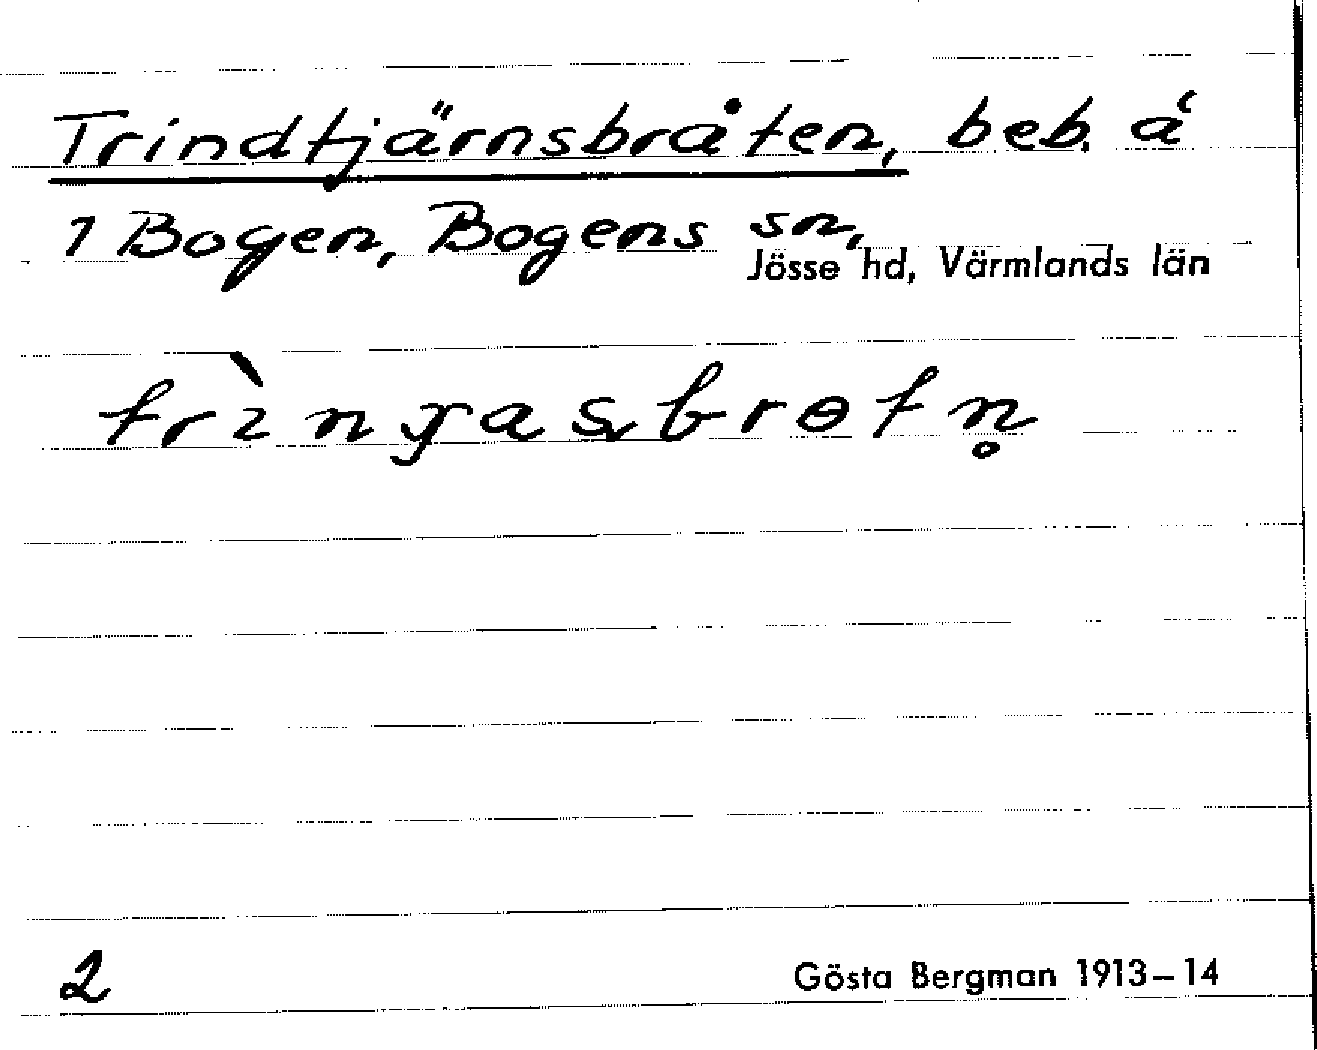 Trindtjärnsbråten, beb. å
1 Bogen, Bogens sn,
Jösse hd, Värmlands län
2
Gösta Bergman 1913–14